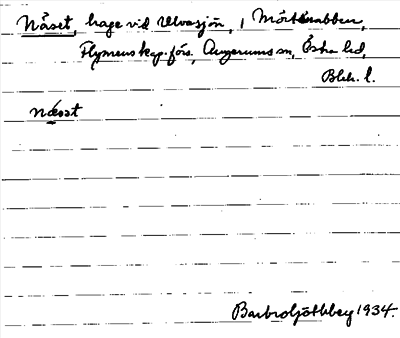 Näset, hage vid Ulvasjön, i Mörtnabben,
Flymens kap.förs., Augerums sn, Östra hd,
Blek. l.
næsət
1934.